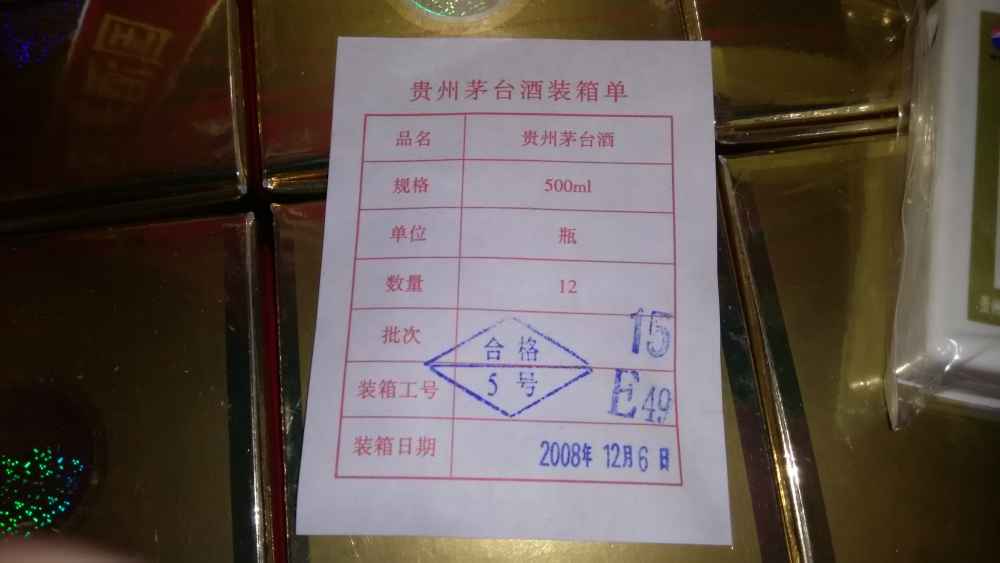 贵州茅台酒装箱单
品名 贵州茅台酒
规格 500ml
单位 瓶
数量 12
批次 15
合格
5号
装箱工号 E49
装箱日期 2008年 12月 6 日